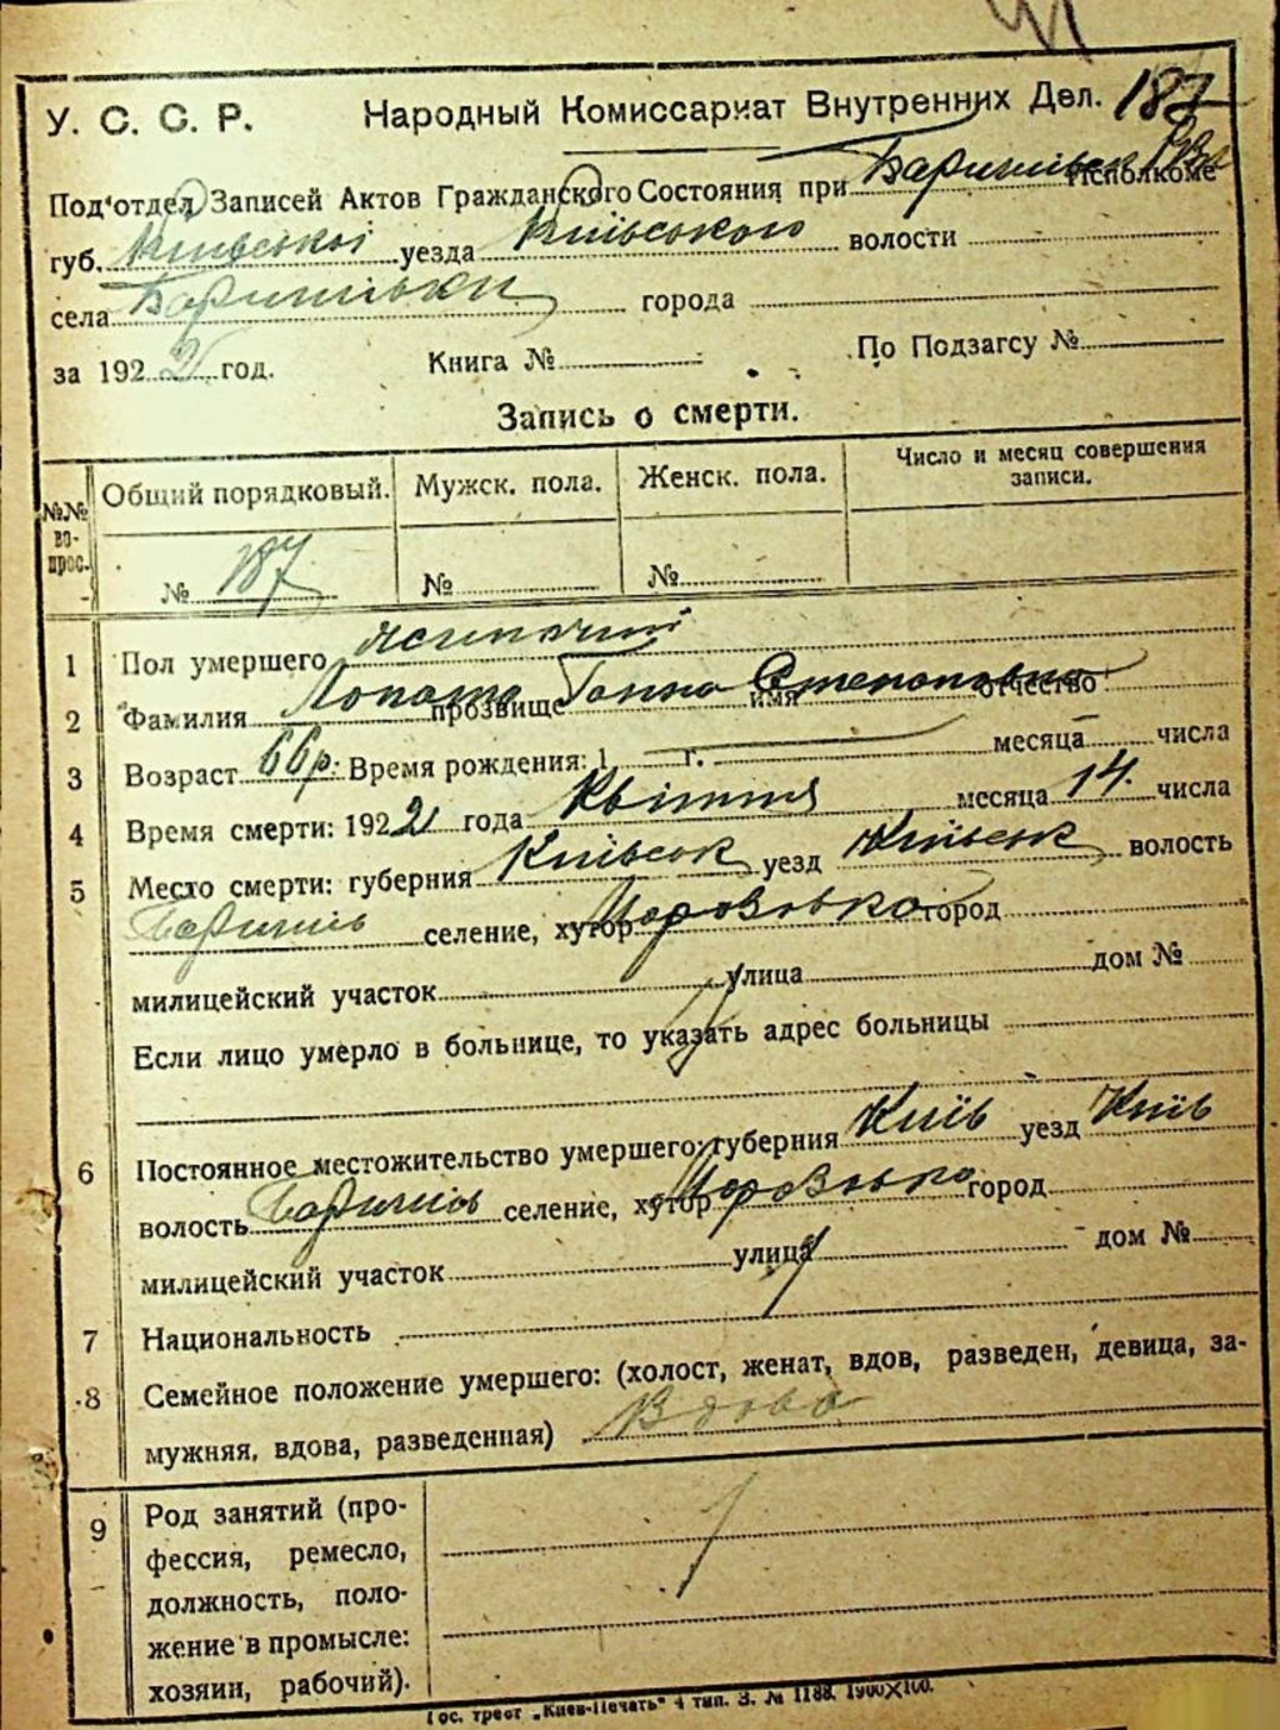 У. С. С. Р. Народный Комиссариат Внутренних Дел. 187
Под'отдел Записей Актов Гражданского Состояния при Баришівськ Исполкоме
губ. Київської уезда Київського волости
села Баришівки города
за 1922 год. Книга № По Подзагсу №
Запись о смерти.
№№ вопрос. Общий порядковый. Мужск. пола. Женск. пола. Число и месяц совершения записи.
№ 187 № №
1 Пол умершего жіночий
2 Фамилия Лопата прозвище Ганна имя Степановна отчество
3 Возраст 66 р. Время рождения: 1 г. месяца числа
4 Время смерти: 1922 года Квітня месяца 14 числа
5 Место смерти: губерния Київськ уезд Київськ волость
Баришів селение, хутор Морозовка город
милицейский участок улица дом №
Если лицо умерло в больнице, то указать адрес больницы
6 Постоянное местожительство умершего: губерния Київ уезд Київ
волость Баришів селение, хутор Морозовка город
милицейский участок улица дом №
7 Национальность
8 Семейное положение умершего: (холост, женат, вдов, разведен, девица, за-
мужняя, вдова, разведенная) Вдова
9 Род занятий (про-
фессия, ремесло,
должность, поло-
жение в промысле:
хозяин, рабочий).
Гос. трест „Киев-Печать" 4 тип. З. № 1188. 1900X100.